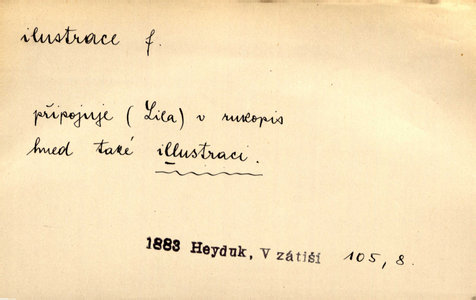 ilustrace f.
připojuje (Lila) v rukopis
hned také illustraci.
1883 Heyduk, V zátiší 105, 8.